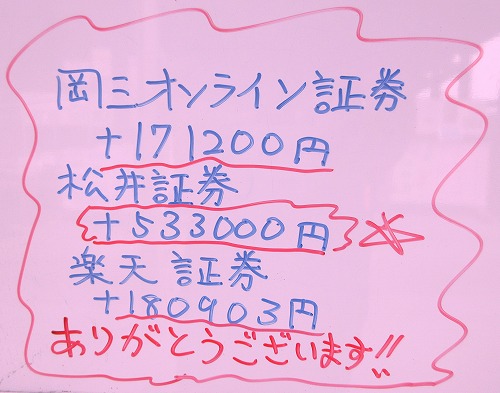 岡三オンライン証券
+171200円
松井証券
+533000円
楽天証券
+180903円
ありがとうございます!!